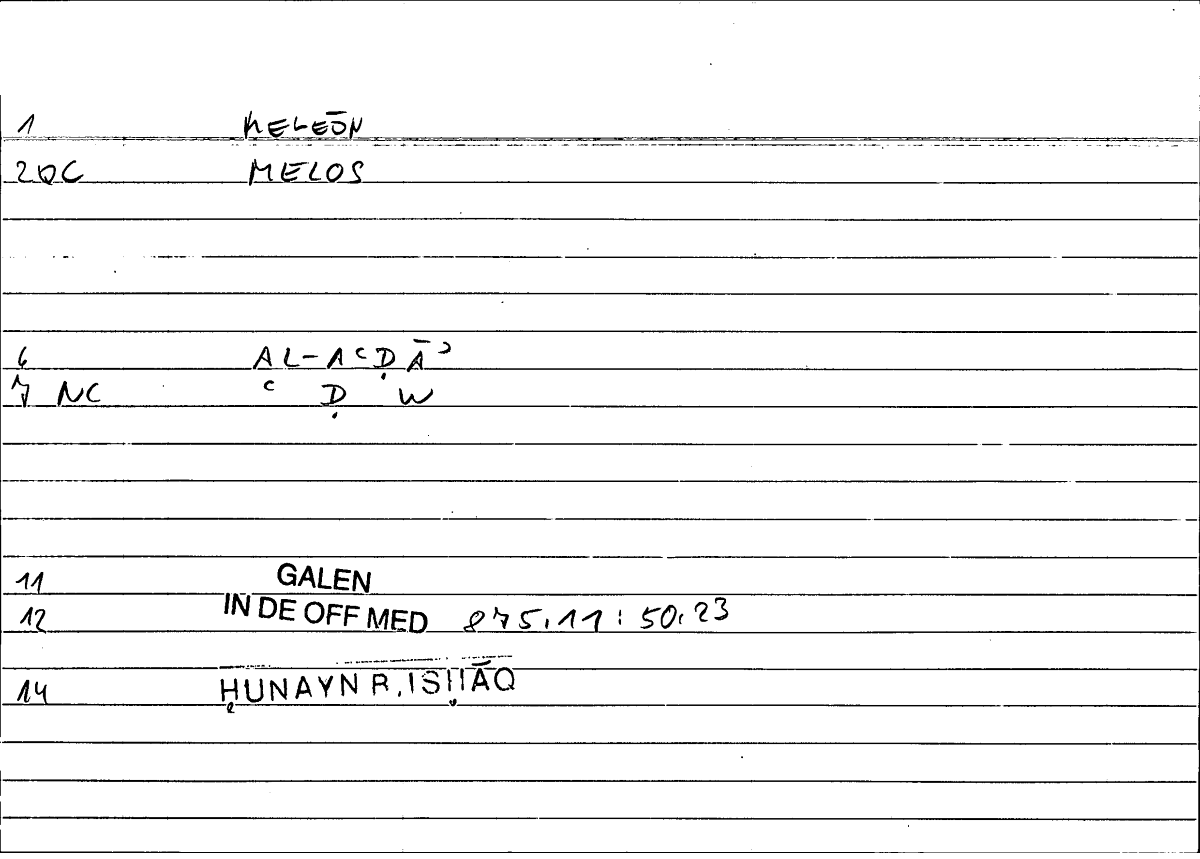 1 MELEŌN
2QC MELOS
6 AL-AʿḌĀʾ
7 NC ʿ Ḍ W
11 GALEN
12 IN DE OFF MED 875.11:50.23
14 ḤUNAYN B. ISḤĀQ